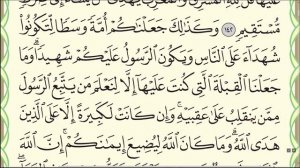 مُّسْتَقِيمٍ ١٤٢ وَكَذَٰلِكَ جَعَلْنَاكُمْ أُمَّةً وَسَطًا لِّتَكُونُوا۟
شُهَدَآءَ عَلَى ٱلنَّاسِ وَيَكُونَ ٱلرَّسُولُ عَلَيْكُمْ شَهِيدًا وَمَا
جَعَلْنَا ٱلْقِبْلَةَ ٱلَّتِى كُنتَ عَلَيْهَآ إِلَّا لِنَعْلَمَ مَن يَتَّبِعُ ٱلرَّسُولَ
مِمَّن يَنقَلِبُ عَلَىٰ عَقِبَيْهِ وَإِن كَانَتْ لَكَبِيرَةً إِلَّا عَلَى ٱلَّذِينَ
هَدَى ٱللَّهُ وَمَا كَانَ ٱللَّهُ لِيُضِيعَ إِيمَٰنَكُمْ إِنَّ ٱللَّهَ